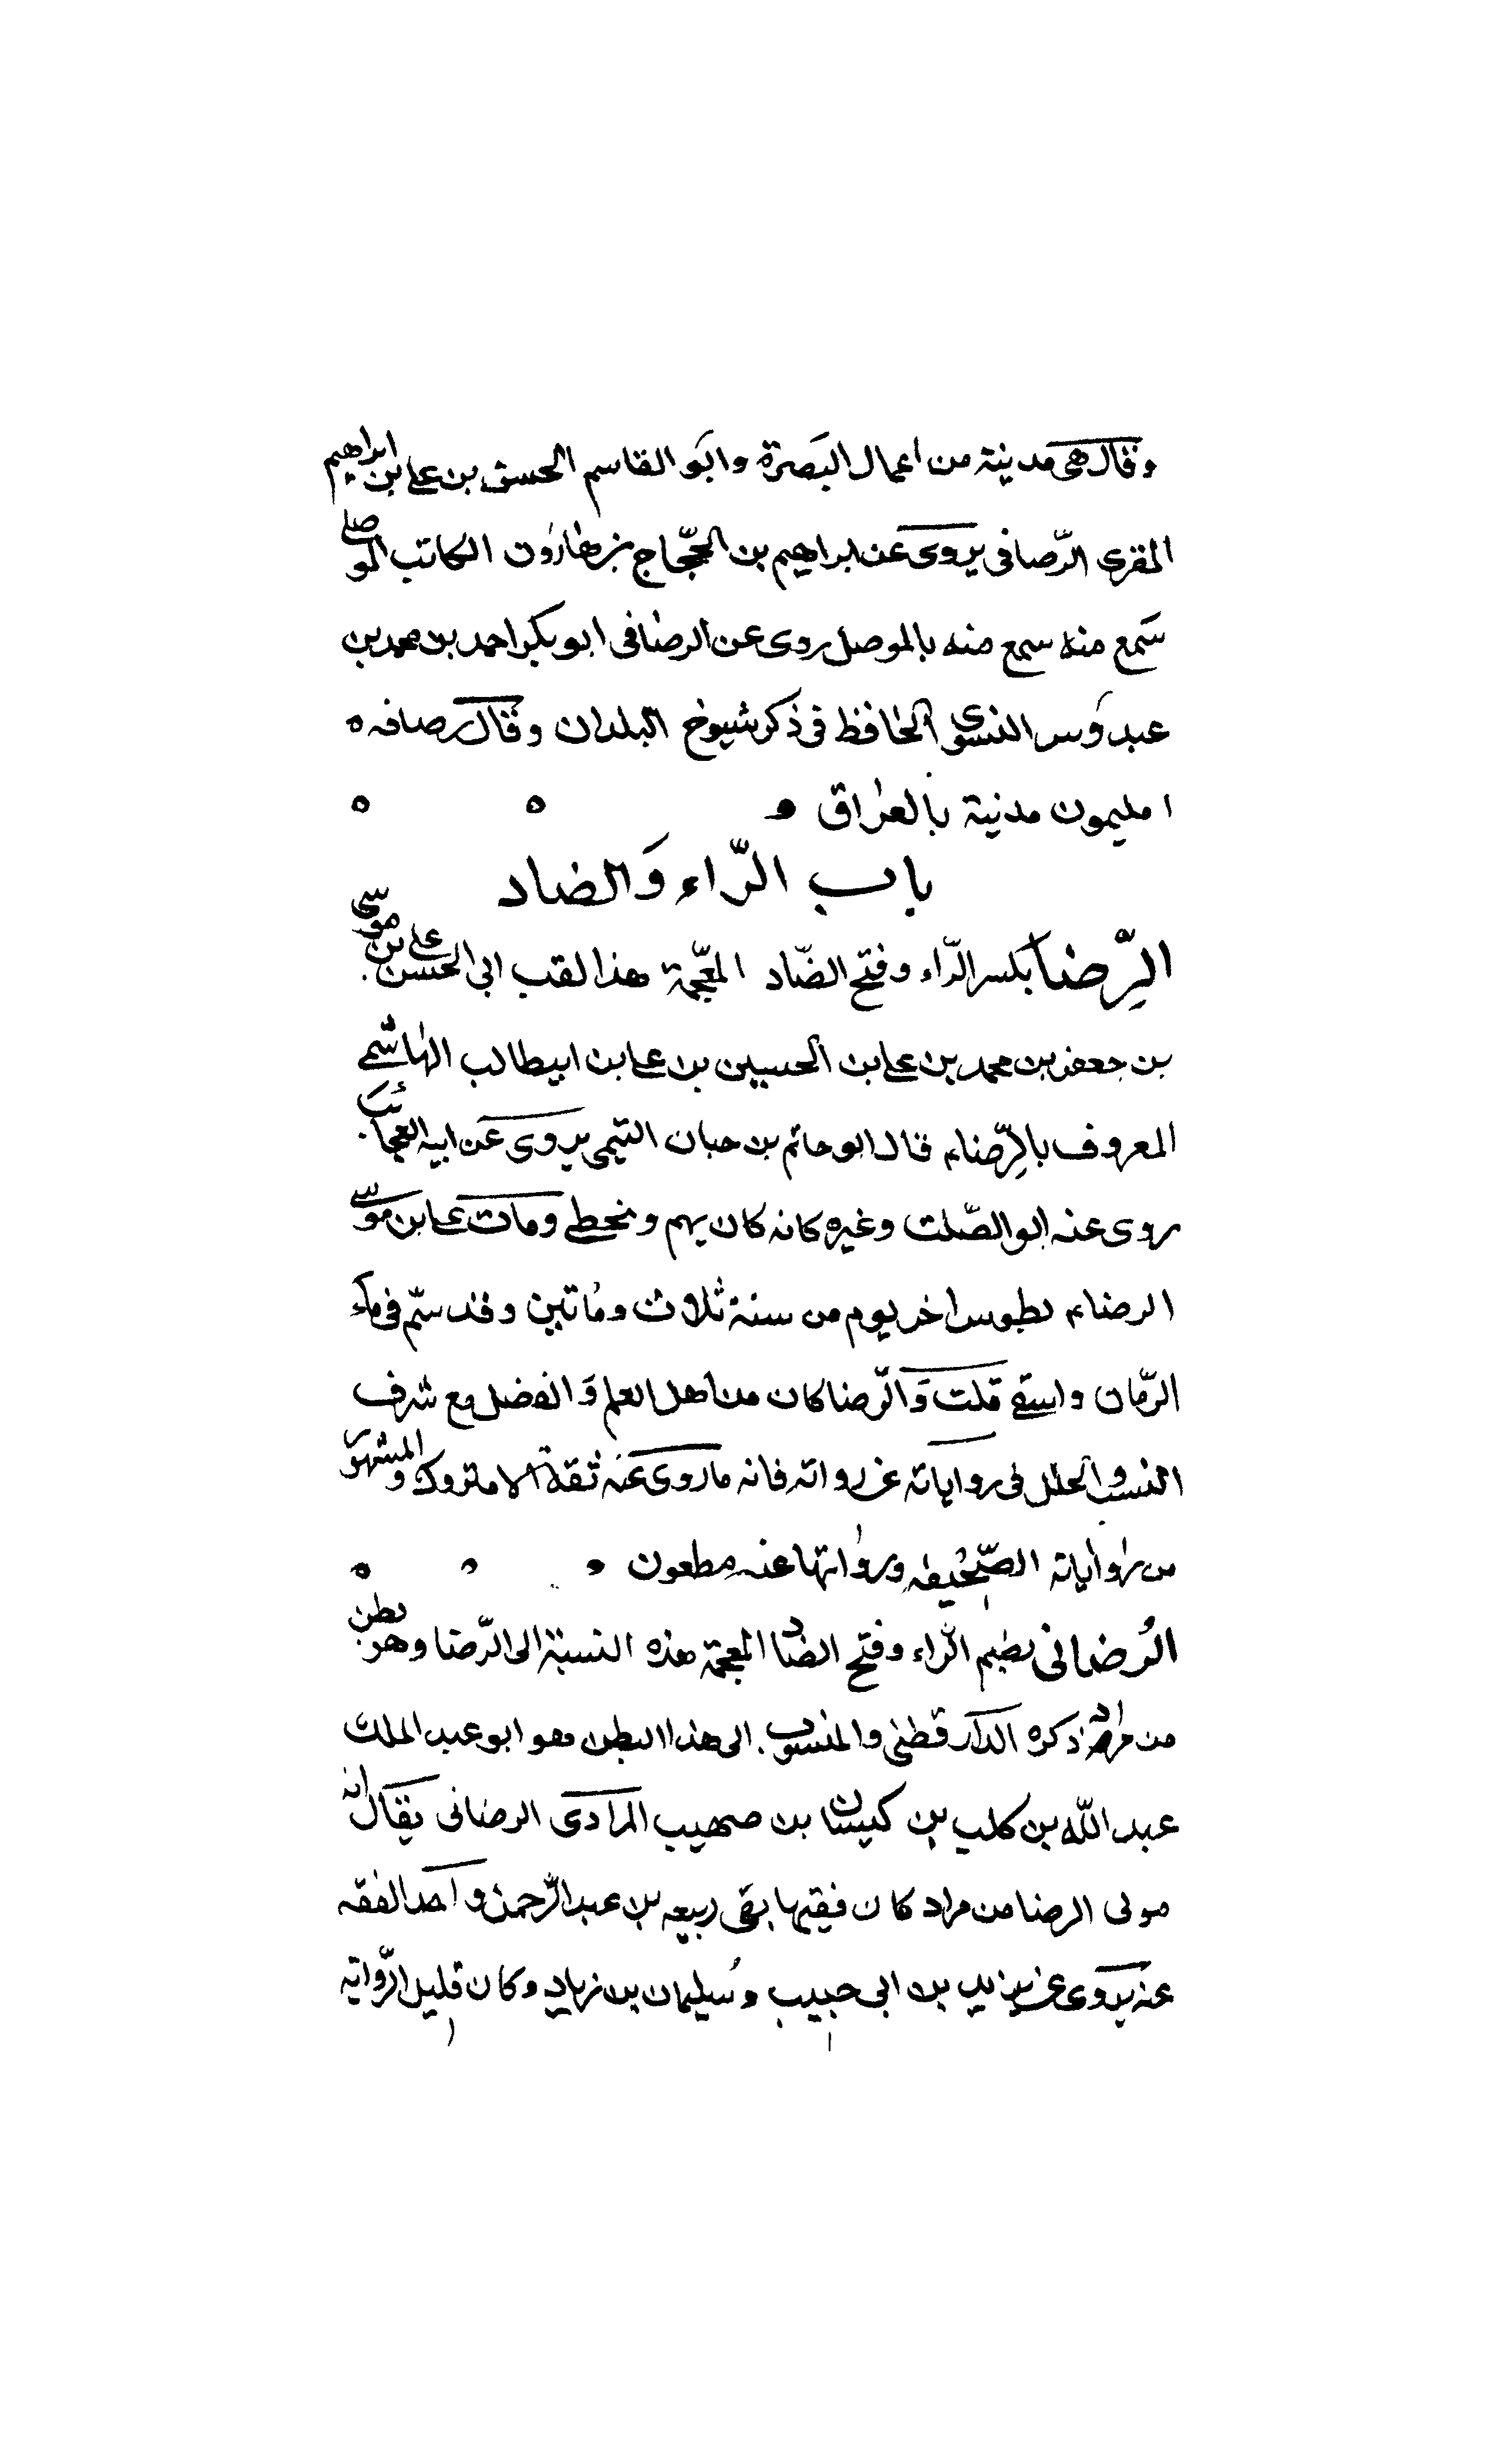 وقال هى مدينة من اعمال البصرة وابو القاسم الحسن بن على بن ابراهيم
المقرى الرّصافى يروى عن ابراهيم بن الحجّاج بن هارون الكاتب الموصلى
سمع منه سمع منه بالموصل روى عن الرضافى ابو بكر احمد بن محمد بن
عبدوس النسوى الحافظ فى ذكر شيوخ البلدان وقال رصافه
مدنية بالعراق
باب الرّاء والضاد
الرِّضا بكسر الرّاء وفتح الضّاد المعجّمة هذا لقب ابى الحسن على بن موسى
بن جعفر بن محمد بن على بن الحسين بن على بن ابيطالب الهاشمى
المعروف بالرّضاء قال ابو حاتم بن حبان التيمى يروى عن ابيه العجائب
روى عنه ابو الصّلت وغيره كانه كان يهم ويخطى ومات على بن موسى
الرضاء بطوس اخر يوم من سنة ثلاث ومأتين وقد سمّ فى ماء
الرّمان واسقى قلت والرّضا كان من اهل العلم والفضل مع شرف
النسب والخلل فى رواياته عن رواته فانه ما روى عنه ثقة الا متروك والمشهور
من رواياته الصّحيفه ورواتها عنه مطعون
الرُضانى بضم الرّاء وفتح الضاد المعجمة هذه النسبة الى الرّضا وهو بطن
من مراد ذكره الدارقطنى والمنسوب الى هذا البطن هو ابو عبد الملك
عبد اللّه بن كلب بن كيسان بن صهيب المرادى الرضانى يقال انه
مولى الرضا من مراد كان فقيها ربيعه بن عبد الرّحمن واحد الفقه
عنه يروى عن يزيد بن ابى حبيب وسليمان بن زياد وكان قليل الرّواية